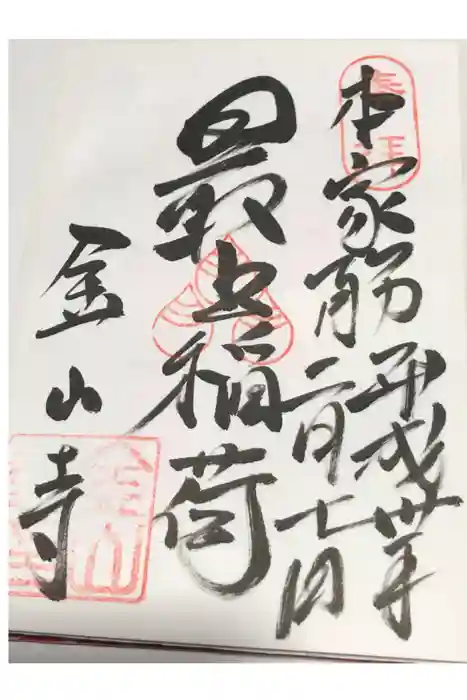 奉拝
本家筋
平成卅年
二月七日
最上稲荷
金山寺